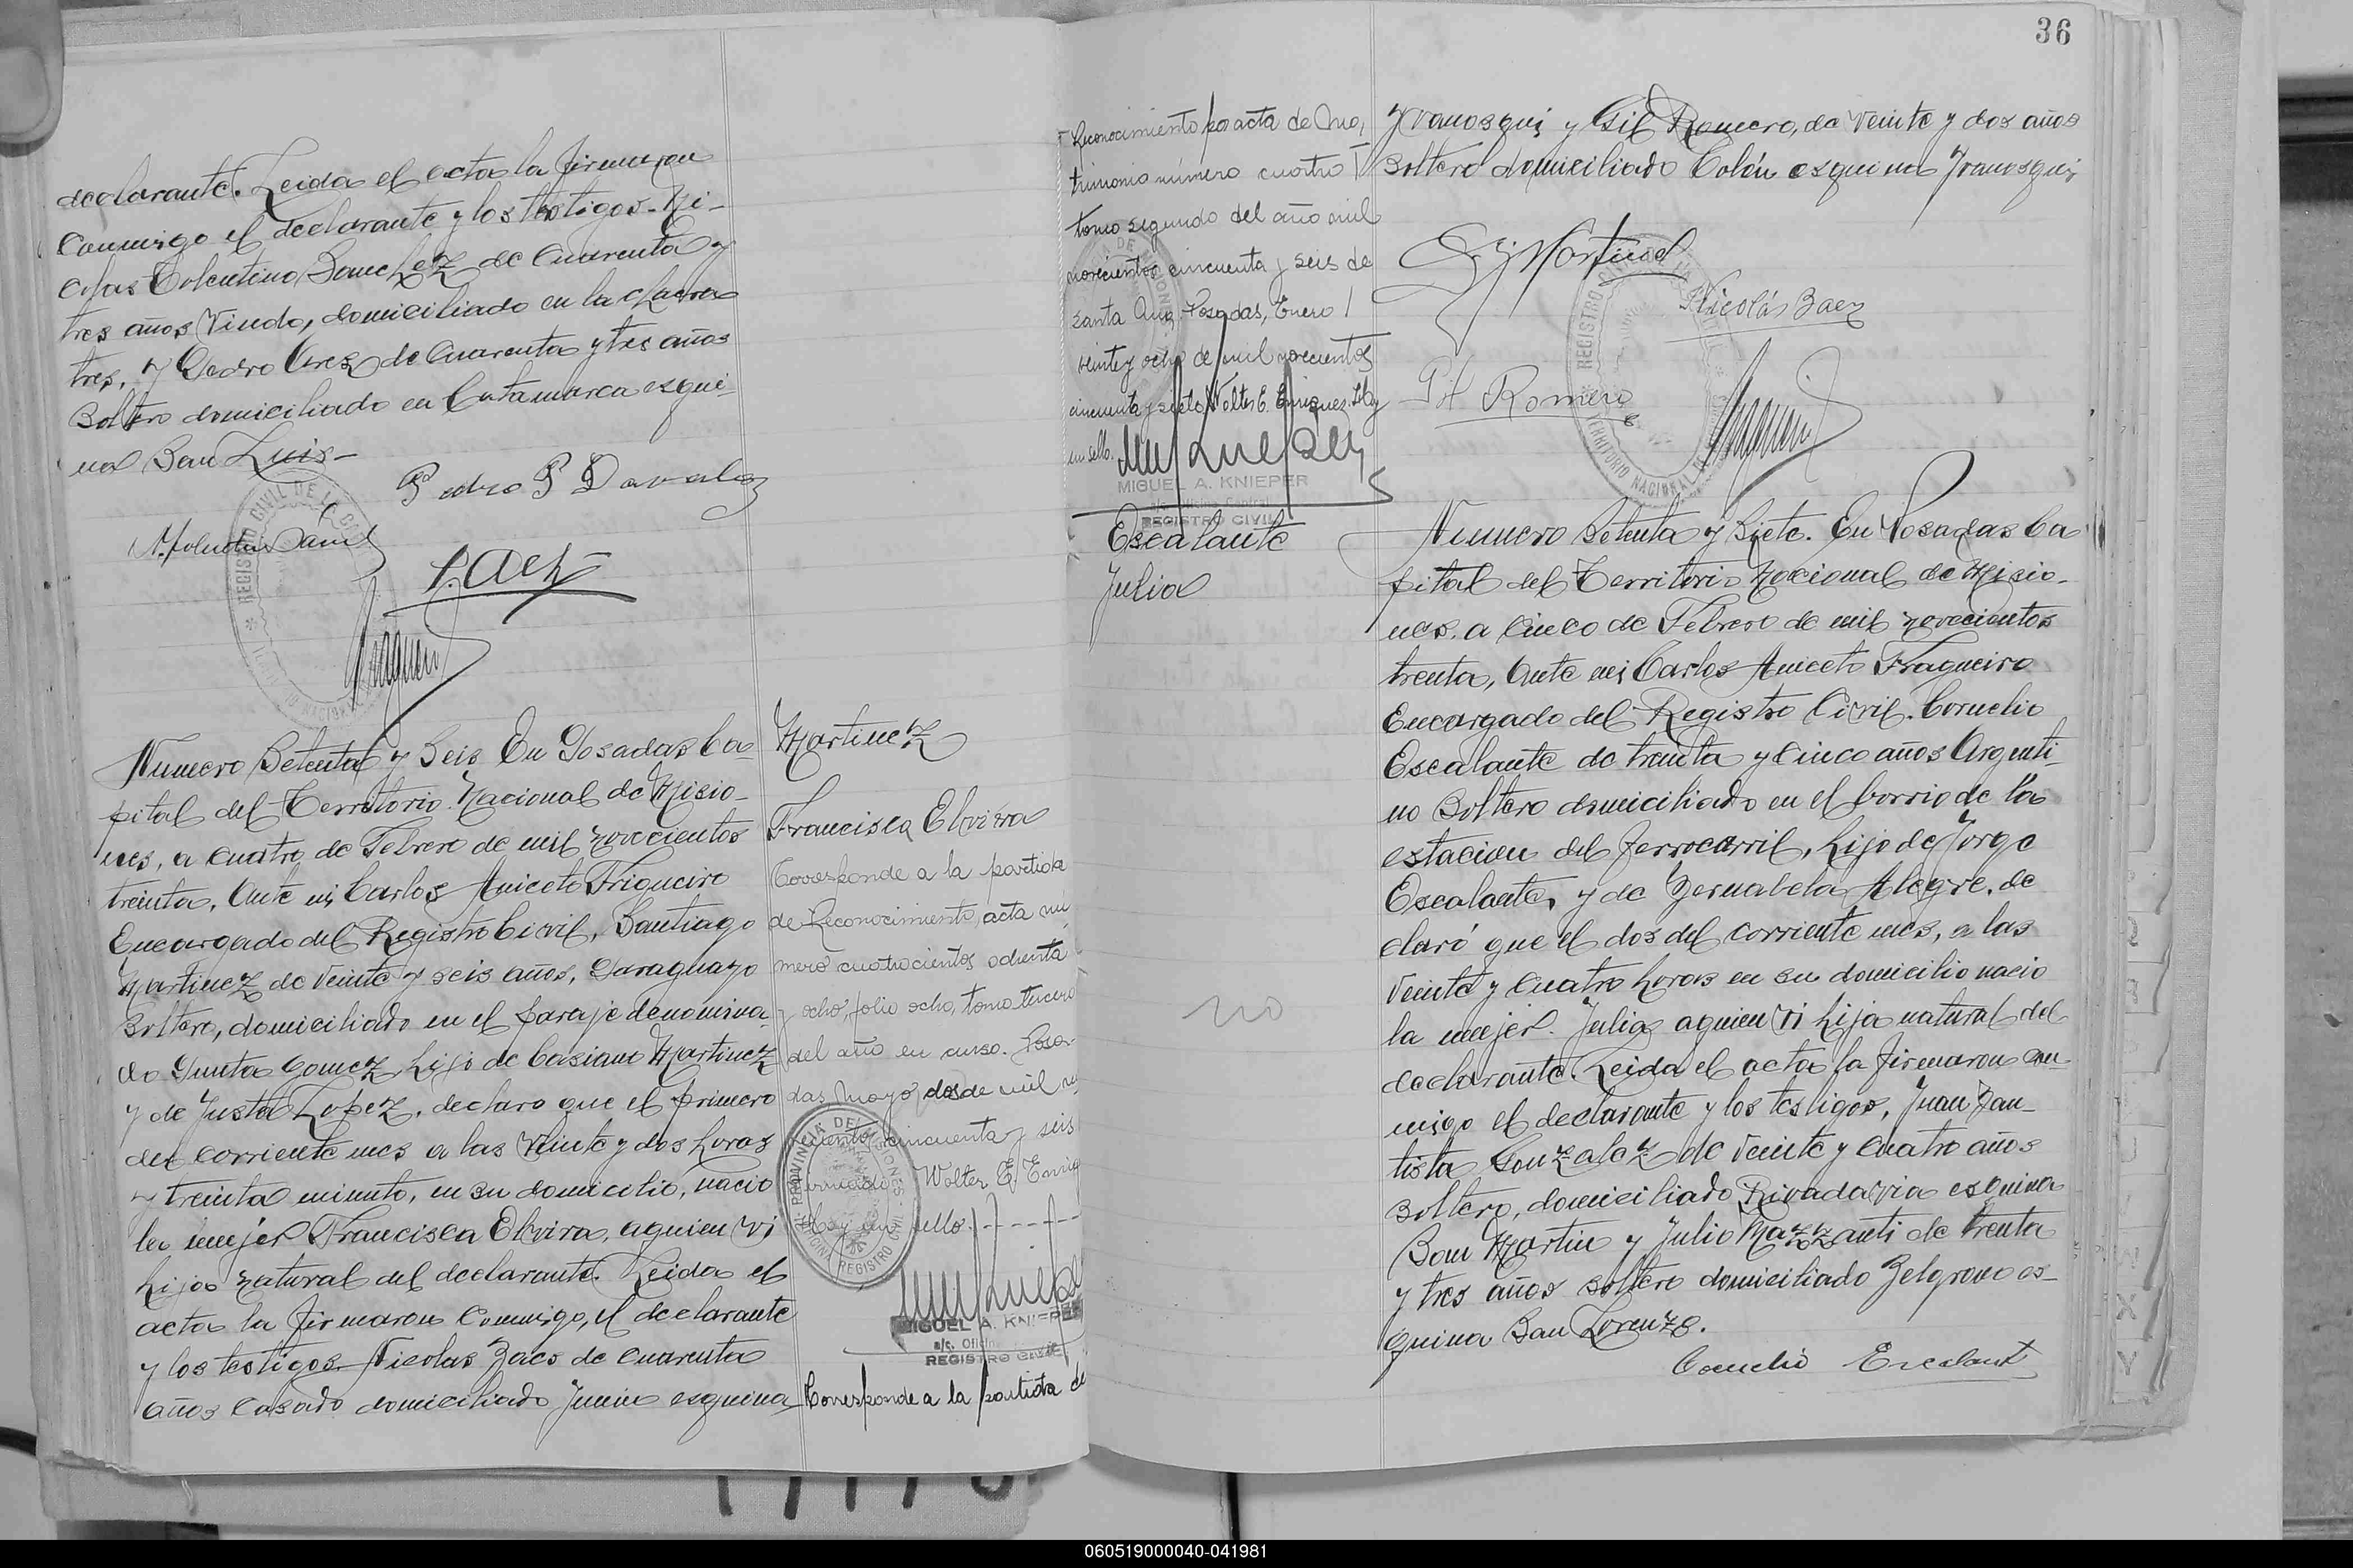 declarante. Leida el acta la firmaron
conmigo el declarante y los testigos. Ni-
colas Tolentino Sanchez de Cuarenta y
tres años Viudo, domiciliado en la chacra
tres, y Pedro de Cuarenta y tres años
Soltero domiciliado en Catamarca esqui-
na San Luis-
Pedro P Davalos
REGISTRO CIVIL DE LA
Numero Setenta y Seis En Posadas Ca-
pital del Territorio Nacional de Misio-
nes, a cuatro de Febrero de mil novecientos
treinta, Ante mi Carlos Aniceto Frigueiro
Encargado del Registro Civil, Santiago
Martinez de veinte y seis años, Paraguayo
Soltero, domiciliado en el paraje denomina-
do Punta Gomez, hijo de Casiano Martinez
y de Justa Lopez, declaro que el primero
del corriente mes a las veinte y dos horas
y treinta minuto, en su domicilio, nacio
la mujer Francisca Elvira, aquien vi
hija natural del declarante. Leida el
acta la firmaron Conmigo, el declarante
y los testigos. Nicolas Baes de Cuarenta
años Casado domiciliado Junin esquina
Martinez
Francisca Elvira
Corresponde a la partida
de Reconocimiento, acta nú
mero cuatrocientos ochenta
y ocho, folio ocho, tomo tercero
del año en curso. Posa-
das, Mayo dos de mil no
cientos cincuenta y seis
Firmado Walter E. Enriq
Hay un sello.
PROVINCIA DE MISIONES
REGISTRO CIVIL
MIGUEL A. KNIEPER
a/c. Ofici
REGISTRO CIVIL
Corresponde a la partida de
36
Reconocimiento por acta de Ma,
trimonio número cuatro
tomo segundo del año mil
novecientos cincuenta y seis de
Santa Ana. Posadas, Enero
veinte y ocho de mil novecientos
cincuenta y siete Walter E. Enriquez. Hay
un sello.
MIGUEL A. KNIEPER
a/c. Oficina Central
REGISTRO CIVIL
Escalante
Julia
no
Yvanosqui y Gil Romero, de veinte y dos años
Soltero domiciliado Colón esquina Yvanosqui
Nicolás Baez
Gil Romero
REGISTRO CIVIL
TERRITORIO NACIONAL
Numero Setenta y Siete. En Posadas Ca
pital del Territorio Nacional de Misio-
nes, a Cinco de Febrero de mil novecientos
treinta, Ante mi Carlos Aniceto Fragueiro
Encargado del Registro Civil. Cornelio
Escalante de treinta y Cinco años Argenti-
no Soltero domiciliado en el barrio de la
estacion del ferrocarril, hijo de Jorge
Escalante, y de Bernabela Alegre, de
claró que el dos del corriente mes, a las
Veinte y Cuatro horas en su domicilio nacio
la mujer. Julia, aquien vi hija natural del
declarante. Leida el acta la firmaron con
migo el declarante y los testigos, Juan Bau-
tista Gonzalez de Veinte y Cuatro años
soltero, domiciliado Rivadavia esquina
San Martin y Julio Mazzanti de treinta
y tres años soltero domiciliado Belgrano es-
quina San Lorenzo.
Cornelio Escalante
060519000040-041981